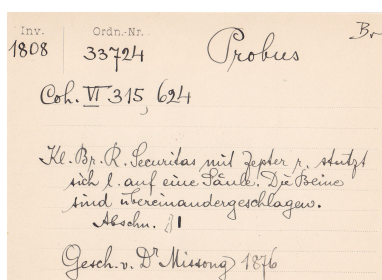 Inv. Ordn.-Nr. Br
1808 33724 Probus
Coh. VI 315, 624
Kl. Br. R. Securitas mit Zepter r. stützt
sich l. auf eine Säule. Die Beine
sind übereinandergeschlagen.
Abschn.
Gesch. v. Dr Missong 1876